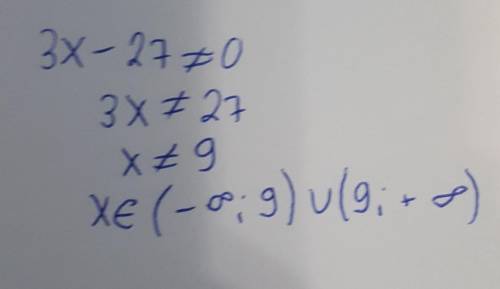 3x - 27 ≠ 0
3x ≠ 27
x ≠ 9
x ∈ (-∞; 9) ∪ (9; +∞)